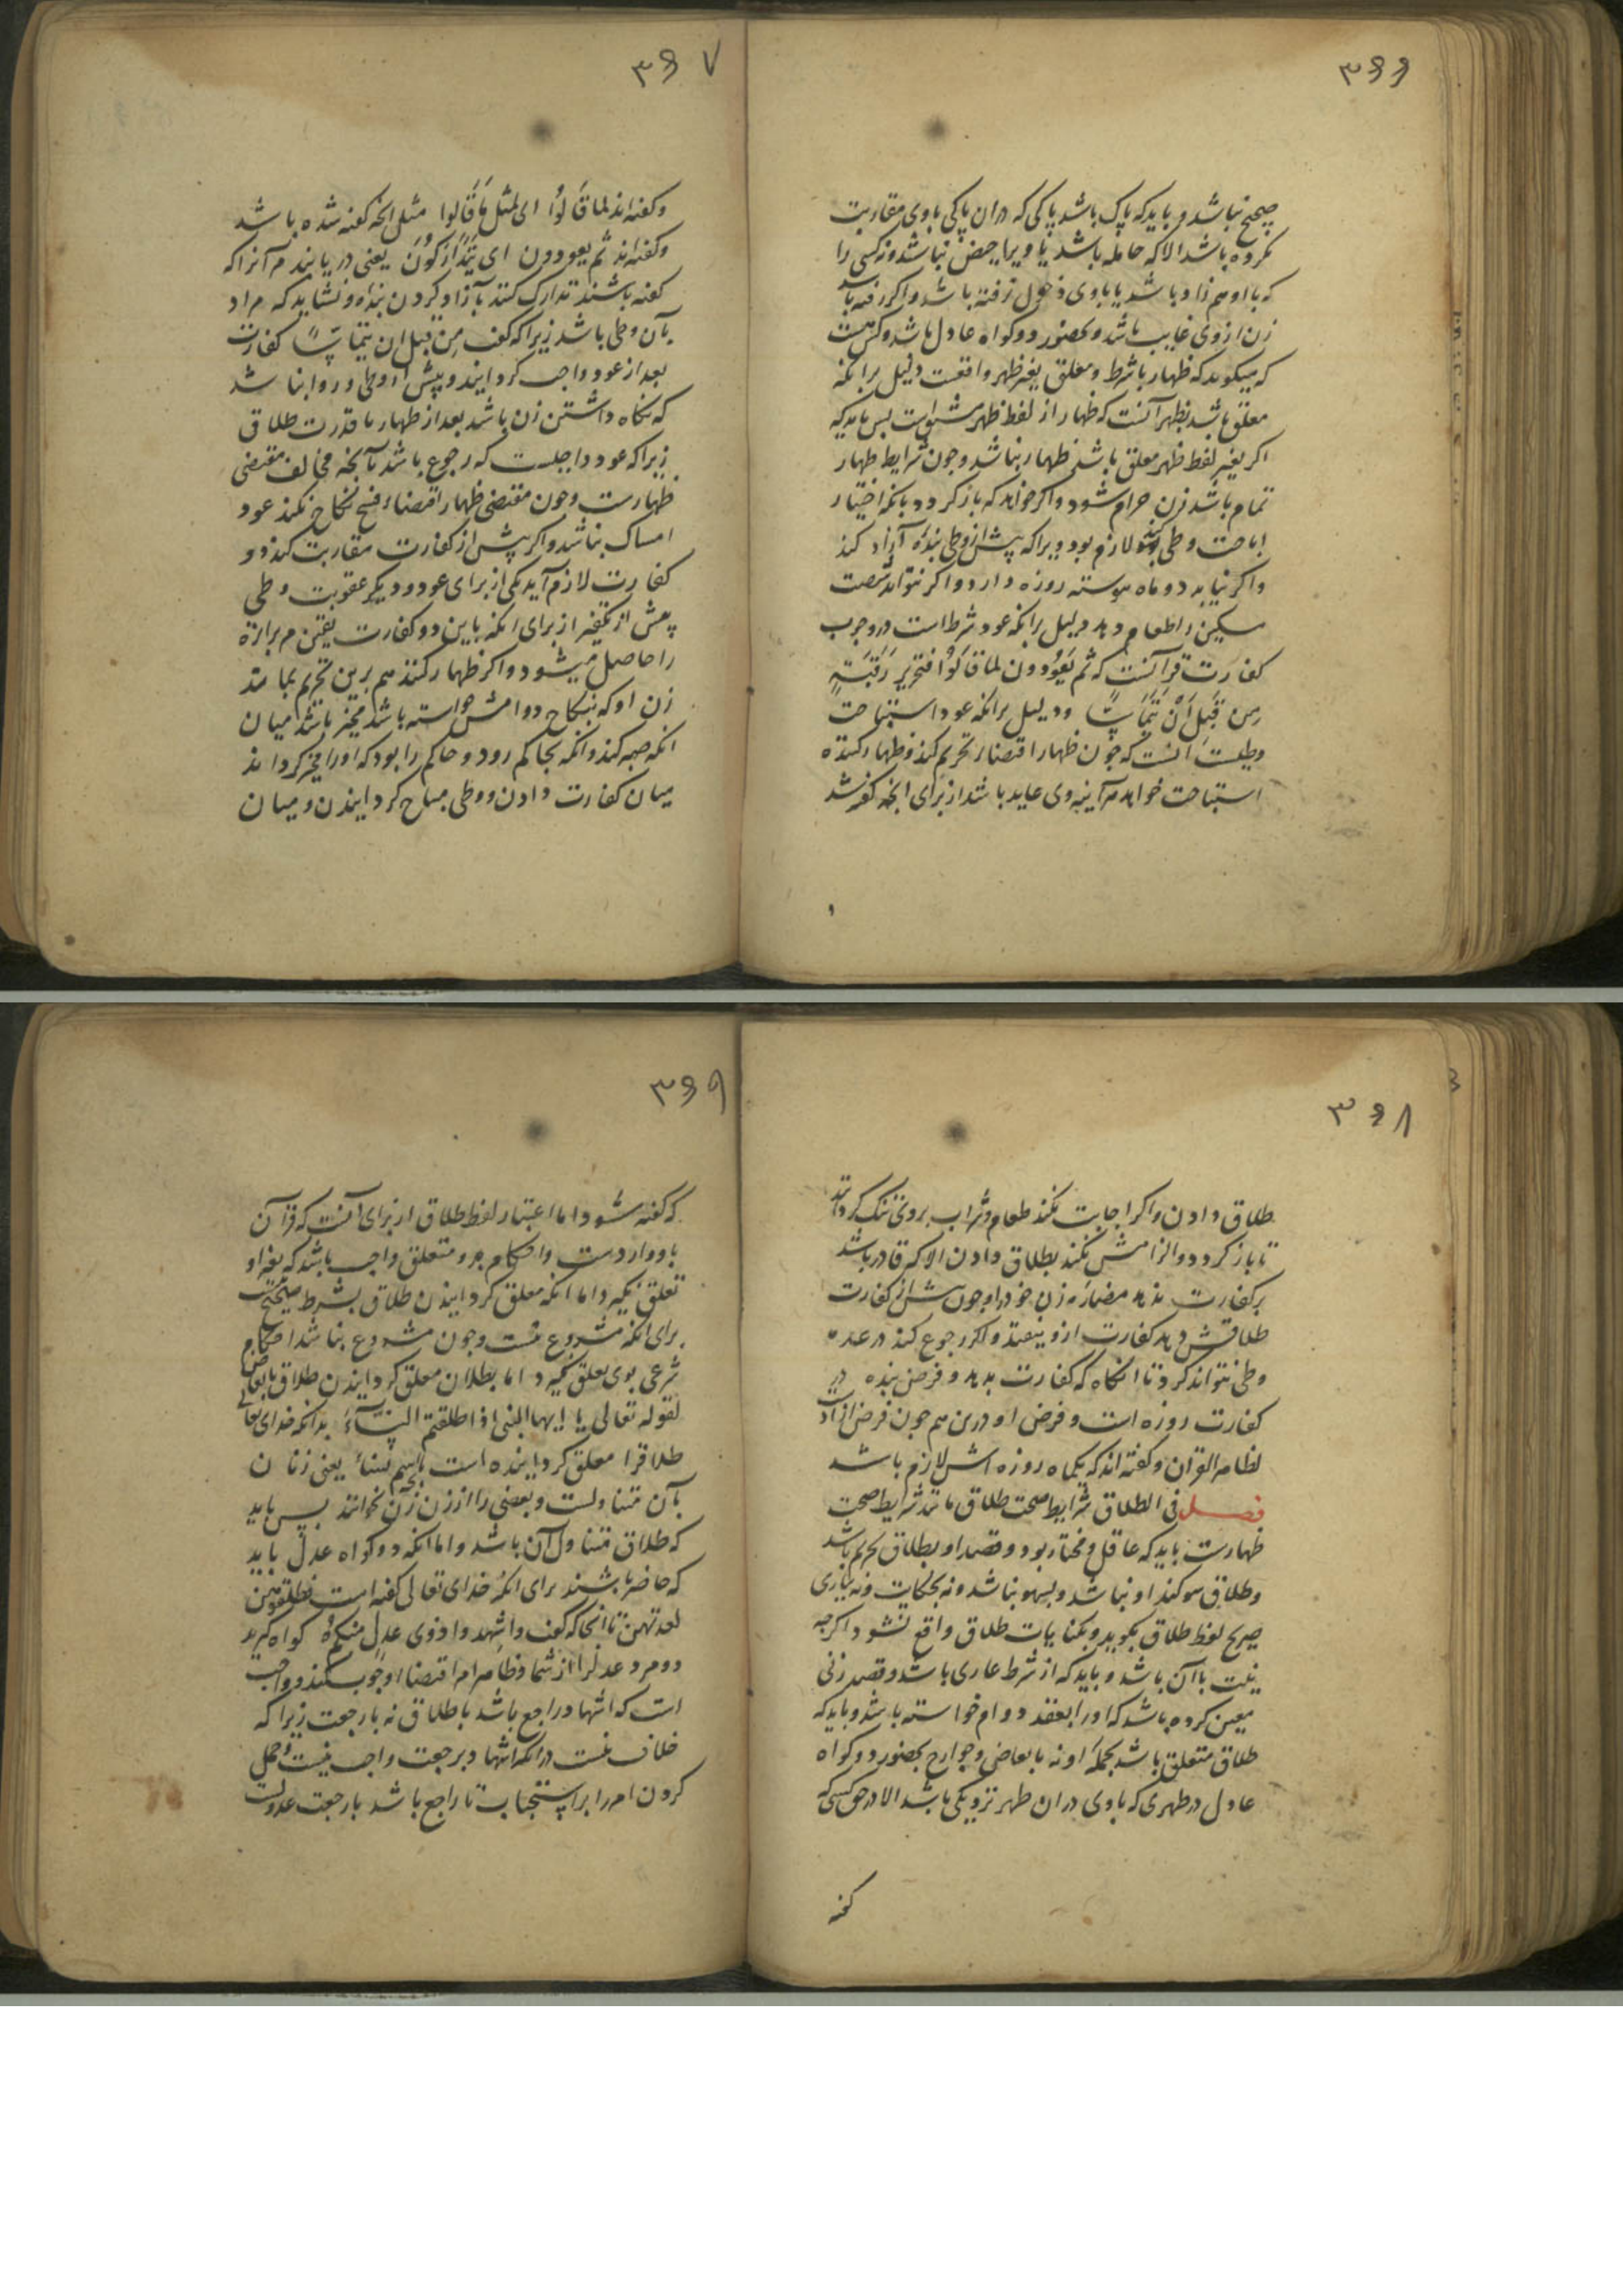 ۳۶۶
صحیح نباشد و باید که پاک باشد پاکی که دران پاکی باوی مقاربت
نکرده باشد الا که حامله باشد یا ویرا حیض نباشد و نه کسی را
که با او هم زاد باشد یا باوی دخول نرفته باشد و اگر رفته باشد
زن ازوی غایب باشد و بحضور دو گواه عادل باشد و کس هست
که میگوید که ظهار باشرط و معلق بغیر ظهر واقعست دلیل برانکه
معلق باشد بظهر آنست که ظهار از لفظ ظهر مشتق است پس باید که
اگر بغیر لفظ ظهر معلق باشد ظهار نباشد و چون شرایط ظهار
تمام باشد زن حرام شود و اگر خواهد که باز گردد بانکه اختیار
اباحت وطی کند لازم بود ویرا که پیش از وطی بنده آزاد کند
و اگر نیابد دو ماه پیوسته روزه دارد و اگر نتواند شصت
مسکین را طعام دهد و دلیل برانکه عود شرط است در وجوب
کفارت قرآنست که ثم یَعُودون لما قالُوا فتحریر رَقَبَةٍ
مِن قَبلِ اَنْ یَتَمَاسَّا و دلیل برانکه عود استباحت
وطیست آنست که چون ظهار اقتضاء تحریم کند و ظهار کننده
استباحت خواهد هرآینه وی عاید باشد از برای آنچه گفته شد
۳۶۷
و گفته‌اند لما قالوُا ای لمثل مَا قَالوا مثل آنچه گفته شده باشد
و گفته‌اند ثم یعودون ای یَتَدَارَکُونَ یعنی دریابند مر آنرا که
گفته باشند تدارک کنند بآزاد کردن بنده و نشاید که مراد
بآن وطی باشد زیرا که گفت مِن قبل ان یتماسَّا کفارت
بعد از عود واجب گردانید و پیش از وطی و روا نباشد
که نگاه داشتن زن باشد بعد از ظهار با قدرت طلاق
زیرا که عود واجبست که رجوع باشد بآنچه مخالف مقتضی
ظهارست و چون مقتضی ظهار اقتضاء فسخ نکاح نکند عود
امساک نباشد و اگر پیش از کفارت مقاربت کند دو
کفارت لازم آید یکی از برای عود و دیگر عقوبت وطی
پیش از تکفیر از برای آنکه باین دو کفارت یقین مر برائة
را حاصل میشود و اگر ظهار کننده هم برین تحریم بماند
زن او که بنکاح دوامش خواسته باشد مخیر باشد میان
آنکه صبر کند و آنکه بحاکم رود و حاکم را بود که او را مخیر گرداند
میان کفارت دادن و وطی مباح گردانیدن و میان
۳۶۸
طلاق دادن و اگر اجابت نکند طعام و شراب بروی تنگ گرداند
تا باز گردد و الزامش نکند بطلاق دادن الا که قادر باشد
بر کفارت مضاره زن خود را و چون پیش از کفارت
طلاقش دهد کفارت ازو بیفتد و اگر رجوع کند در عده
وطی نتواند کرد تا آنگاه که کفارت بدهد و فرض بنده در
کفارت روزه است و فرض او درین هم چون فرض آزاد است
لظاهر القرآن و گفته‌اند که یکماه روزه اش لازم باشد
فصل فی الطلاق شرایط صحت طلاق مانند شرایط صحت
ظهارست باید که عاقل و مختار بود و قصد او بطلاق تحریم باشد
و طلاق سوگند او نباشد و بسهو نباشد و نه بحکایت و نه ببازی
صریح لفظ طلاق بگوید و بکنایات طلاق واقع نشود اگرچه
نیت با آن باشد و باید که از شرط عاری باشد و قصد زنی
معین کرده باشد که او را بعقد دوام خواسته باشد و باید که
طلاق متعلق باشد بجمله او نه بابعاض و جوارح بحضور دو گواه
عادل در طهری که باوی دران طهر نزدیکی نباشد الا در حق کسی که
گفته
۳۶۹
که گفته شود اما اعتبار لفظ طلاق از برای آنست که قرآن
باو واردست و احکام برو متعلق واجب باشد که بغیر او
تعلق نگیرد و اما آنکه معلق گردانیدن طلاق بشرط صحیح نیست
برای آنکه مشروع نیست و چون مشروع نباشد احکام
شرعی بوی تعلق نگیرد اما بطلان معلق گردانیدن طلاق بابعاض
لقوله تعالی یا ایها النبی اذا طلقتم النِسَآءَ بدانکه خدای تعالی
طلاقرا معلق گردانیده است باسم نساء یعنی زنان
بآن متناولست و بعضی را از زن زن نخوانند پس باید
که طلاق متناول آن باشد و اما آنکه دو گواه عدل باید
که حاضر باشند برای آنکه خدای تعالی گفته است فطلقوهن
لعدتهن تا آنجا که گفت و اشهدوا ذوی عدلٍ منکم گواه گیرید
دو مرد عدلرا از شما و ظاهر امر اقتضاء وجوب کند و واجب
است که اشهاد راجع باشد باطلاق نه بارجعت زیرا که
خلاف نیست درآنکه اشهاد بر رجعت واجب نیست و حمل
کردن امر را بر استحباب تا راجع باشد بارجعت عدولست